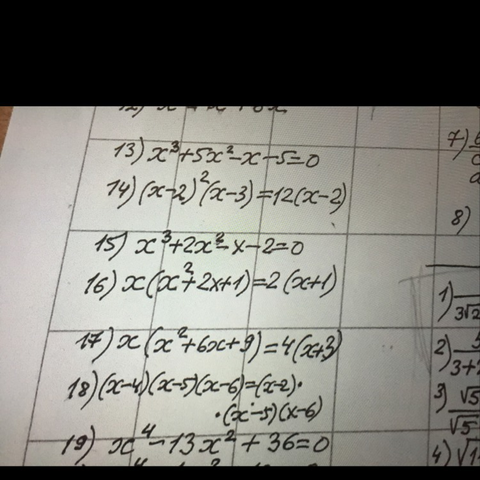 13) x³+5x²-x-5=0
14) (x-2)²(x-3)=12(x-2)
15) x³+2x²-x-2=0
16) x(x²+2x+1)=2(x+1)
17) x(x²+6x+9)=4(x+3)
18) (x-4)(x-5)(x-6)=(x-2)·
·(x-5)(x-6)
19) x⁴-13x²+36=0
7)
8)
1)
3√2
2)
3)
√5
√5
4)